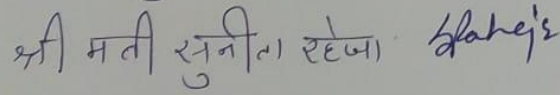 श्री मती सुनीता रहेजा SRaheja